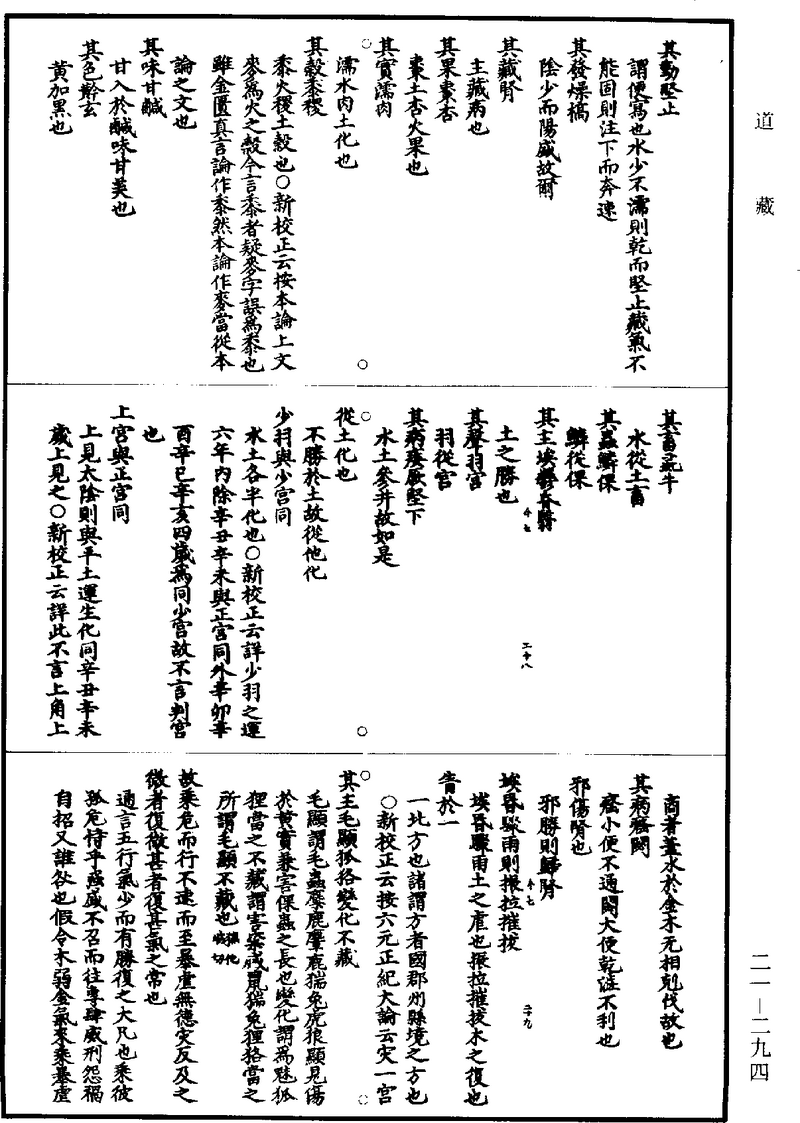 道藏
其動堅止
謂便寫也水少不濡則乾而堅止藏氣不
能固則注下而奔速
其發燥槁
陰少而陽盛故爾
其藏腎
主藏病也
其果棗杏
棗土杏火果也
其實濡肉
濡水肉土化也
其穀黍稷
黍火稷土穀也○新校正云按本論上文
麥為火之穀今言黍者疑麥字誤為黍也
雖金匱真言論作黍然本論作麥當從本
論之文也
其味甘鹹
甘入於鹹味甘美也
其色黅玄
黃加黑也
其畜彘牛
水從土畜
其蟲鱗倮
鱗從倮
其主埃鬱昏翳
土之勝也
其聲羽宮
羽從宮
其病痿厥堅下
水土參并故如是
從土化也
不勝於土故從他化
少羽與少宮同
水土各半化也○新校正云詳少羽之運
六年內除辛丑辛未與正宮同外辛卯辛
酉辛巳辛亥四歲為同少宮故不言判宮
也
上宮與正宮同
上見太陰則與平土運生化同辛丑辛未
歲上見之○新校正云詳此不言上角上
商者蓋水於金木无相剋伐故也
其病癃閟
癃小便不通閟大便乾澁不利也
邪傷腎也
邪勝則歸腎
埃昏驟雨則振拉摧拔
埃昏驟雨土之虐也振拉摧拔木之復也
眚於一
一北方也諸謂方者國郡州縣境之方也
○新校正云按六元正紀大論云灾一宮
其主毛顯狐狢變化不藏
毛顯謂毛蟲麋鹿麞麀猯兔虎狼顯見傷
於黃實兼害倮蟲之長也變化謂為魅狐
狸當之不藏謂害粢盛鼠猯兔狸狢當之
所謂毛顯不藏也
故乘危而行不速而至暴虐無德灾反及之
微者復微甚者復甚氣之常也
通言五行氣少而有勝復之大凡也乘彼
孤危恃乎強盛不召而往專肆威刑怨禍
自招又誰咎也假令木弱金氣來乘暴虐
二一—二九四